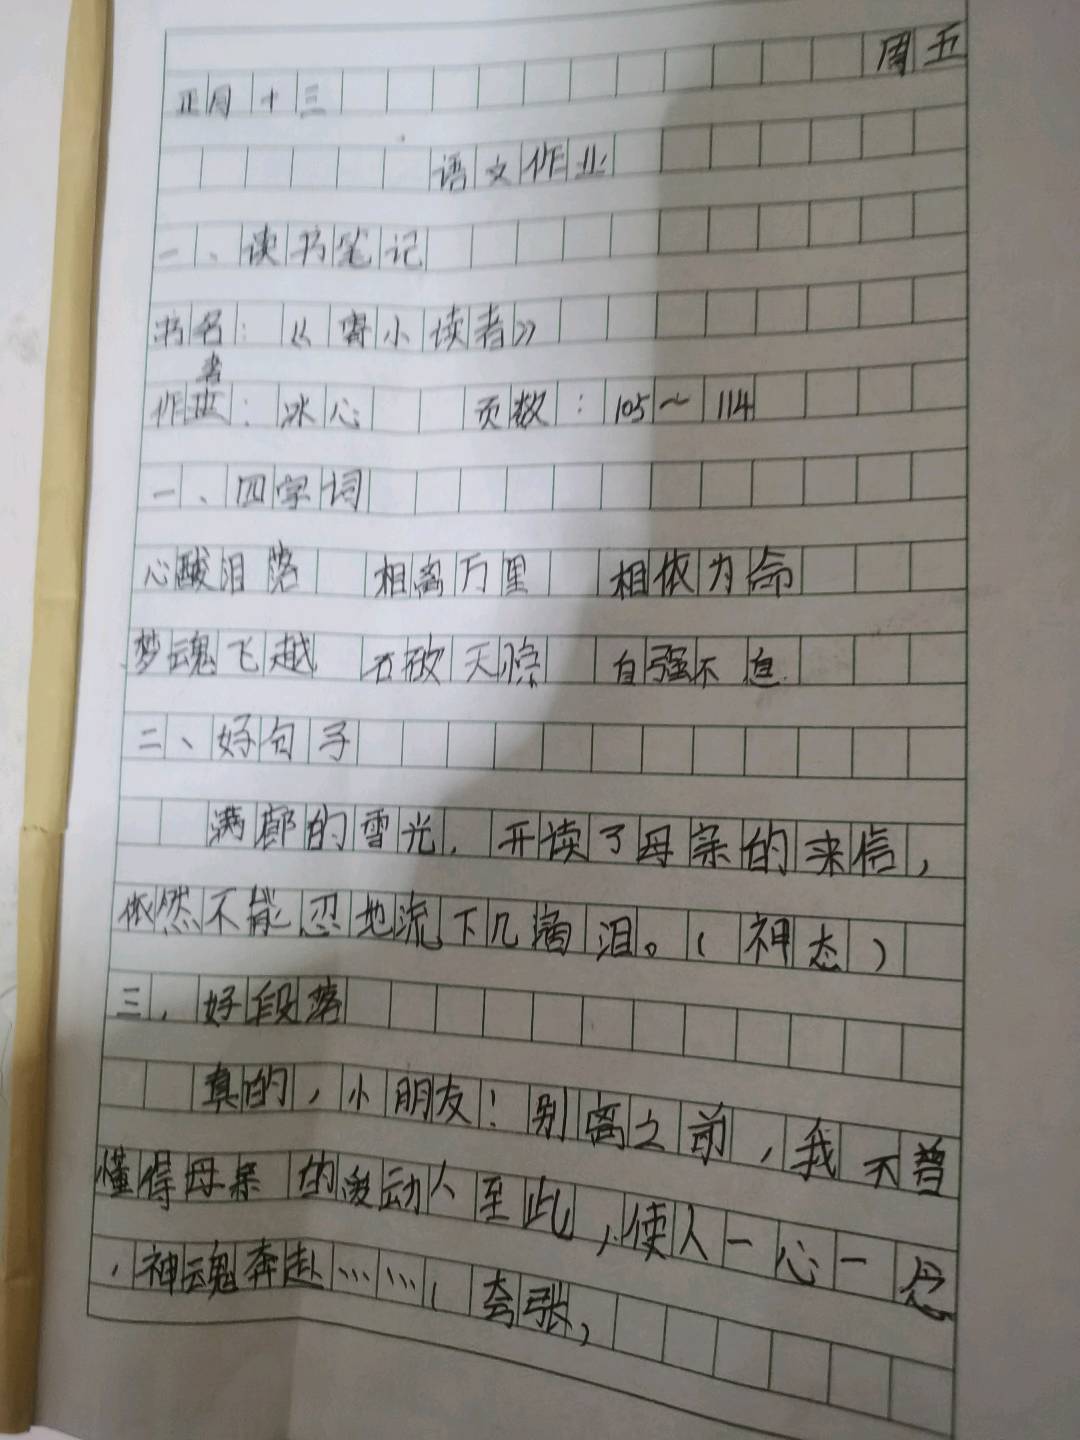 周五
正月十三
语文作业
一、读书笔记
书名：《寄小读者》
作者：冰心 页数：105～114
一、四字词
心酸泪落 相离万里 相依为命
梦魂飞越 石破天惊 自强不息
二、好句子
满廊的雪光，开读了母亲的来信，
依然不能忍地流下几滴泪。（神态）
三、好段落
真的，小朋友！别离之前，我不曾
懂得母亲的爱动人至此，使人一心一念
，神魂奔赴……（夸张）